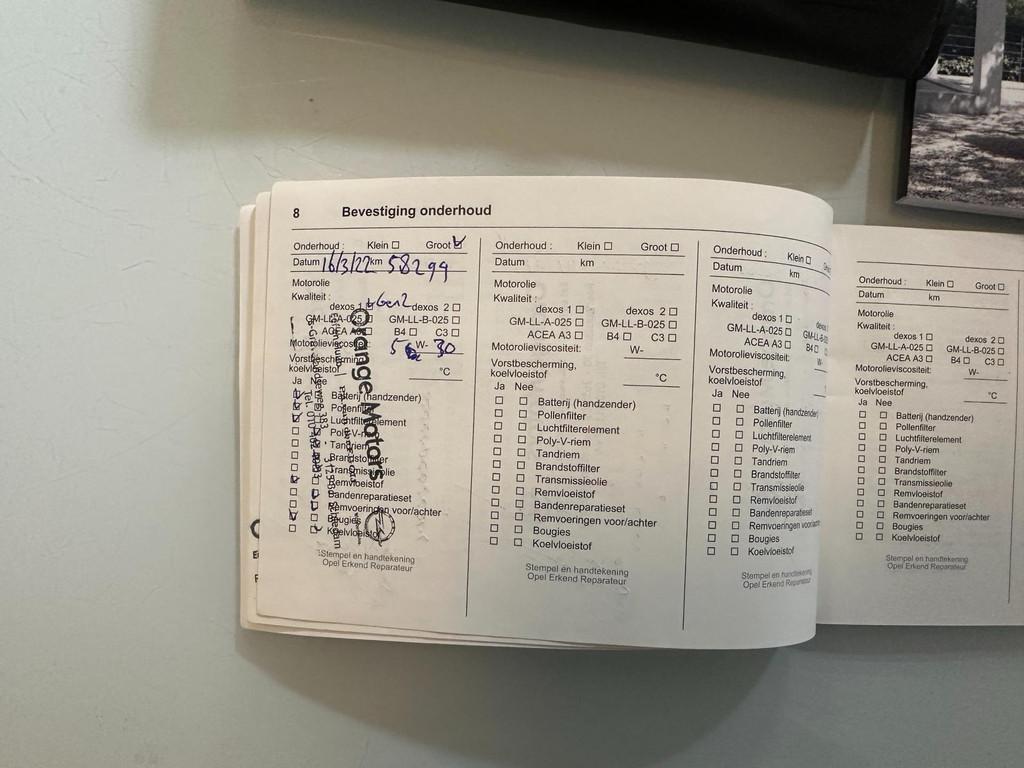 8 Bevestiging onderhoud
Onderhoud : Klein ☐ Groot ☑
Datum 16/3/22 km 58299
Motorolie
Kwaliteit :
dexos 1 Gen2 dexos 2 ☐
GM-LL-A-025 GM-LL-B-025 ☐
ACEA A3 B4 ☐ C3 ☐
Motorolieviscositeit: 5 W- 30
Vorstbescherming,
koelvloeistof °C
Ja Nee
Batterij (handzender)
Pollenfilter
Luchtfilterelement
Poly-V-riem
Tandriem
Brandstoffilter
Transmissieolie
Remvloeistof
Bandenreparatieset
Remvoeringen voor/achter
Bougies
Koelvloeistof
Stempel en handtekening
Opel Erkend Reparateur
Orange Motors
Onderhoud : Klein ☐ Groot ☐
Datum km
Motorolie
Kwaliteit :
dexos 1 ☐ dexos 2 ☐
GM-LL-A-025 ☐ GM-LL-B-025 ☐
ACEA A3 ☐ B4 ☐ C3 ☐
Motorolieviscositeit: W-
Vorstbescherming,
koelvloeistof °C
Ja Nee
☐ ☐ Batterij (handzender)
☐ ☐ Pollenfilter
☐ ☐ Luchtfilterelement
☐ ☐ Poly-V-riem
☐ ☐ Tandriem
☐ ☐ Brandstoffilter
☐ ☐ Transmissieolie
☐ ☐ Remvloeistof
☐ ☐ Bandenreparatieset
☐ ☐ Remvoeringen voor/achter
☐ ☐ Bougies
☐ ☐ Koelvloeistof
Stempel en handtekening
Opel Erkend Reparateur
Onderhoud : Klein ☐
Datum km
Motorolie
Kwaliteit :
dexos 1 ☐ dexos
GM-LL-A-025 ☐ GM-LL-B
ACEA A3 ☐ B4 ☐
Motorolieviscositeit: W-
Vorstbescherming,
koelvloeistof
Ja Nee
☐ ☐ Batterij (handzender)
☐ ☐ Pollenfilter
☐ ☐ Luchtfilterelement
☐ ☐ Poly-V-riem
☐ ☐ Tandriem
☐ ☐ Brandstoffilter
☐ ☐ Transmissieolie
☐ ☐ Remvloeistof
☐ ☐ Bandenreparatieset
☐ ☐ Remvoeringen voor/acht
☐ ☐ Bougies
☐ ☐ Koelvloeistof
Stempel en handtekening
Opel Erkend Reparateur
Onderhoud : Klein ☐ Groot ☐
Datum km
Motorolie
Kwaliteit :
dexos 1 ☐ dexos 2 ☐
GM-LL-A-025 ☐ GM-LL-B-025 ☐
ACEA A3 ☐ B4 ☐ C3 ☐
Motorolieviscositeit: W-
Vorstbescherming,
koelvloeistof °C
Ja Nee
☐ ☐ Batterij (handzender)
☐ ☐ Pollenfilter
☐ ☐ Luchtfilterelement
☐ ☐ Poly-V-riem
☐ ☐ Tandriem
☐ ☐ Brandstoffilter
☐ ☐ Transmissieolie
☐ ☐ Remvloeistof
☐ ☐ Bandenreparatieset
☐ ☐ Remvoeringen voor/achter
☐ ☐ Bougies
☐ ☐ Koelvloeistof
Stempel en handtekening
Opel Erkend Reparateur